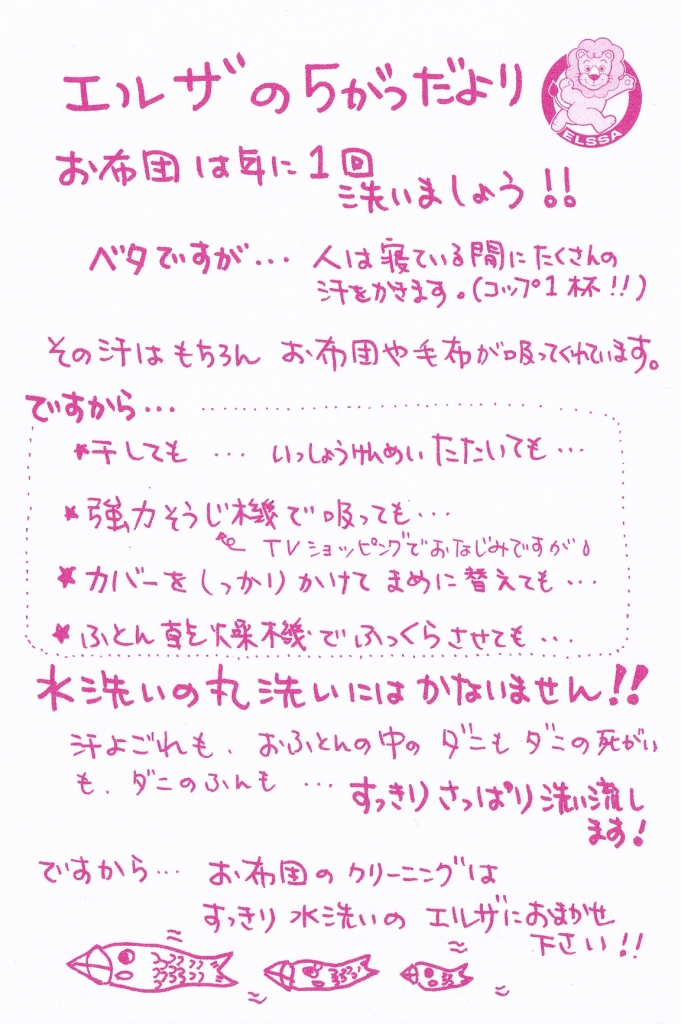 エルザの5がつだより
ELSSA
お布団は年に1回
洗いましょう!!
ベタですが… 人は寝ている間にたくさんの
汗をかきます。(コップ1杯!!)
その汗はもちろん お布団や毛布が吸ってくれています。
ですから…
★干しても … いっしょうけんめい たたいても…
★強力そうじ機で吸っても…
TVショッピングでおなじみですが
★カバーをしっかりかけて まめに替えても…
★ふとん乾燥機でふっくらさせても…
水洗いの丸洗いにはかないません!!
汗よごれも、おふとんの中の ダニも ダニの死がい
も、ダニのふんも … すっきりさっぱり洗い流し
ます!
ですから… お布団のクリーニングは
すっきり 水洗いの エルザにおまかせ
下さい!!